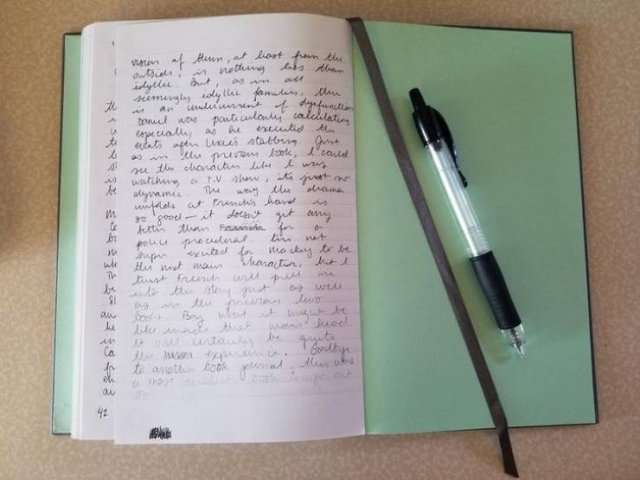 views of them, at least from the
outside, is nothing less than
idyllic. But, as in all
seemingly idyllic families, there
is an undercurrent of dysfunction
was particularly calculating
especially as he executed the
after Lexie's stabbing. Just
as in the previous book, I could
see the characters like I was
watching a T.V show, it's just so
dynamic. The way the drama
unfolds at French's hand is
so good— it doesn't get any
better than for a
police procedural. I'm not
super excited for Mackey to be
the next main character, but I
trust French will pull me
into the story just as well
as in the previous two
books. Boy what it might be
like inside that man's head
It will certainly be quite
the experience. Goodbye
to another book journal. This was
a most excellent book to
42